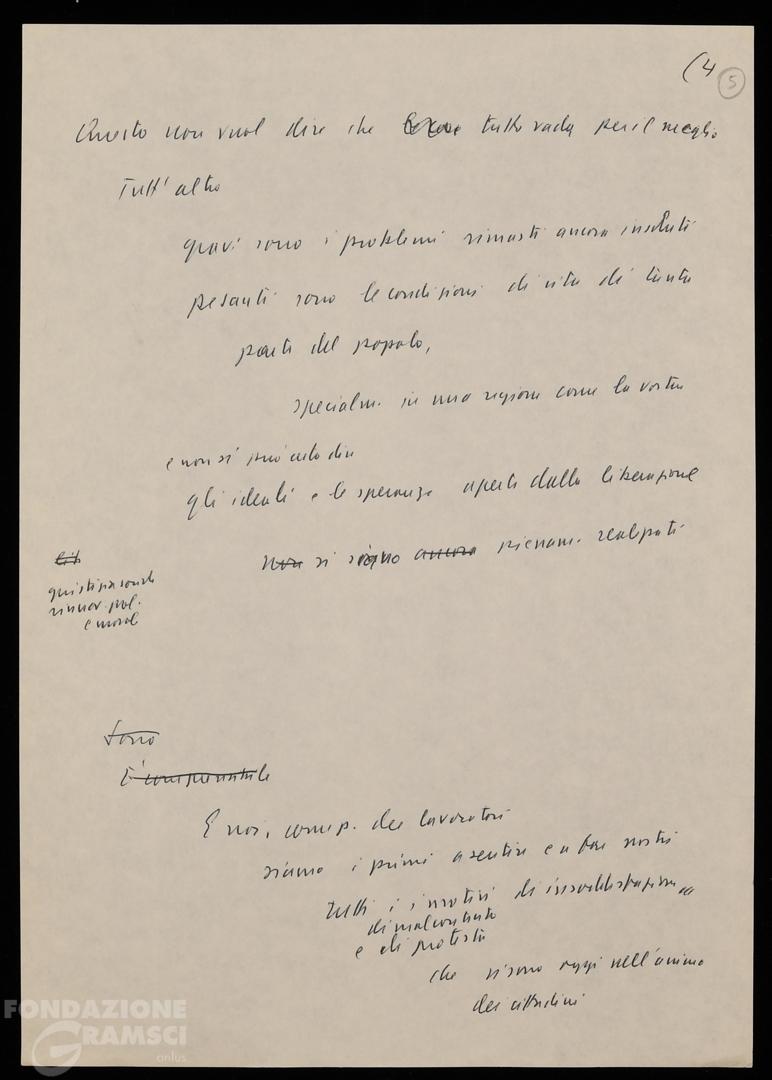 (4
5
Questo non vuol dire che tutto vada per il meglio
Tutt'altro
gravi sono i problemi rimasti ancora insoluti
pesanti sono le condizioni di vita di tanta
parte del popolo,
specialm. in una regione come la vostra
e non si può certo dire
gli ideali e le speranze aperte dalla liberazione
non si siano ancora pienam. realizzati
lib
giustizia sociale
rinnov. pol.
e moral
Sono
E' comprensibile
E noi, come p. dei lavoratori
siamo i primi a sentire e a fare nostri
tutti i motivi di insoddisfazione
di malcontento
e di protesta
che vi sono oggi nell'animo
dei cittadini
FONDAZIONE
GRAMSCI
onlus